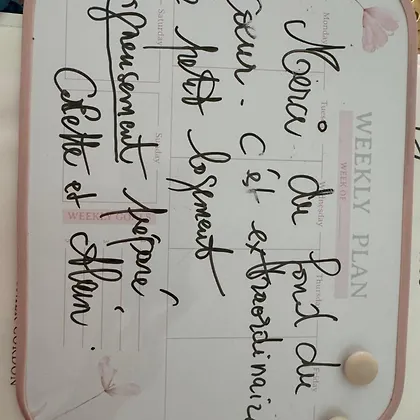 WEEKLY PLAN
WEEK OF
Monday
Tuesday
Wednesday
Thursday
Friday
Saturday
Sunday
WEEKLY GOALS
Merci du fond du
cœur. C'est extraordinaire
petit logement
préparé
Colette et Alain
CORDON